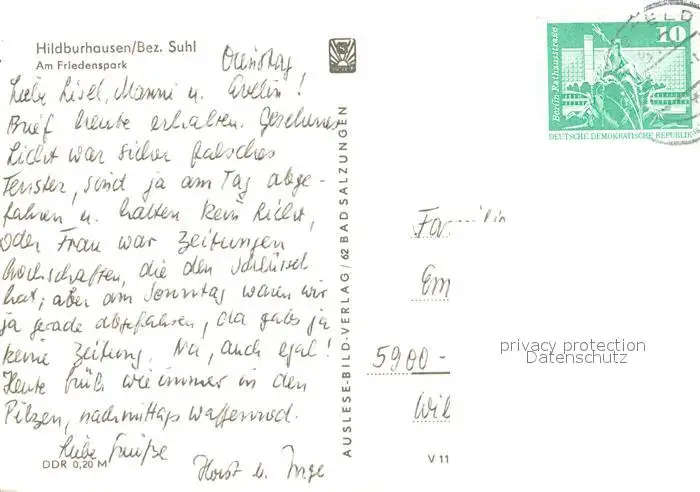 Hildburhausen/Bez. Suhl
Am Friedenspark
Dienstag
Liebe Lisel, Manni u. Evelin!
Brief heute erhalten. Gesehenes
Licht war sicher falsches
Fenster, sind ja am Tag abge-
fahren u. hatten kein Licht,
oder Frau war Zeitungen
hochschaffen, die den Schlüssel
hat; aber am Sonntag waren wir
ja gerade abgefahren, da gabs ja
keine Zeitung. Na, auch egal!
Heute früh wie immer in den
Pilzen, nachmittags Waffenrod.
Liebe Grüße
Horst u. Inge
DDR 0,20 M
AUSLESE-BILD-VERLAG / 62 BAD SALZUNGEN
V 11
10
Berlin, Rathausstraße
DEUTSCHE DEMOKRATISCHE REPUBLIK
Familie
Em
5900-
Wil
privacy protection
Datenschutz